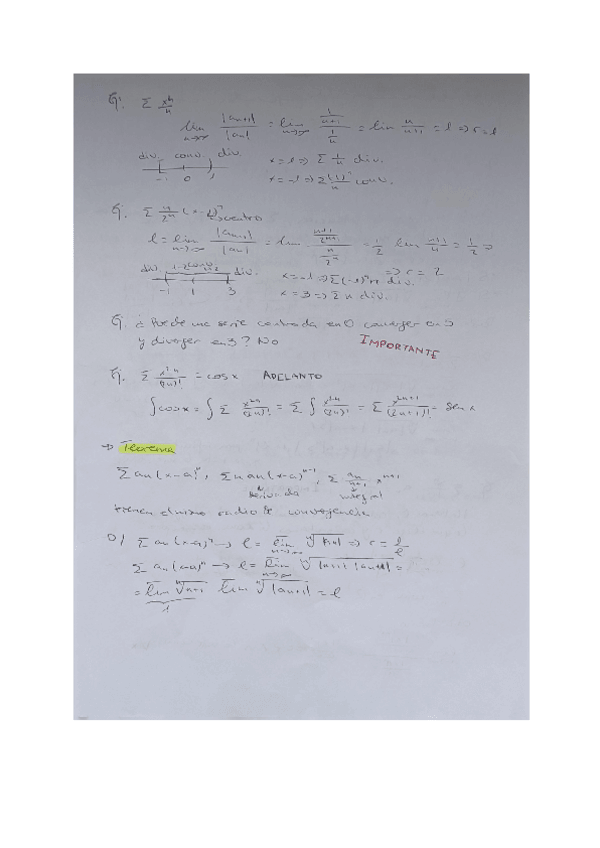 Ej. Σ xⁿ/n
lim n→∞ |an+1|/|an| = lim n→∞ (1/(n+1))/(1/n) = lim n/(n+1) = 1 ⇒ r = 1
div. conv. div. x = 1 ⇒ Σ 1/n div.
-1 0 1 x = -1 ⇒ Σ (-1)ⁿ/n conv.
Ej. Σ n/2ⁿ (x-1)ⁿ centro
l = lim n→∞ |an+1|/|an| = lim ((n+1)/2ⁿ⁺¹)/(n/2ⁿ) = 1/2 lim (n+1)/n = 1/2 ⇒
⇒ r = 2
div. conv. div. x = -1 ⇒ Σ (-1)ⁿ n div.
-1 1 3 x = 3 ⇒ Σ n div.
Ej. ¿Puede una serie centrada en 0 converger en 5
y diverger en 3? No IMPORTANTE
Ej. Σ x²ⁿ/(2n)! = cos x ADELANTO
∫ cos x = ∫ Σ x²ⁿ/(2n)! = Σ ∫ x²ⁿ/(2n)! = Σ x²ⁿ⁺¹/(2n+1)! = sen x
→ Teorema
Σ an(x-a)ⁿ, Σ n an(x-a)ⁿ⁻¹, Σ an/(n+1) xⁿ⁺¹
derivada integral
tienen el mismo radio de convergencia
D/ Σ an(x-a)ⁿ → l = lim n→∞ ⁿ√|an| ⇒ r = 1/l
Σ an(x-a)ⁿ → l = lim n→∞ ⁿ√|n+1| |an+1| =
= lim ⁿ√n+1 lim ⁿ√|an+1| = l
1